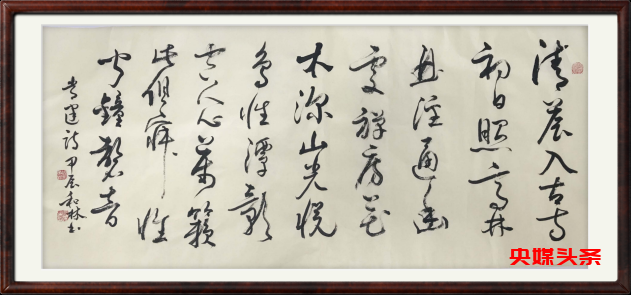 清晨入古寺
初日照高林
曲徑通幽
處禪房花
木深山光悦
鳥性潭影
空人心萬籟
此俱寂惟
聞鐘磬音
常建詩甲辰和林书
央媒头条